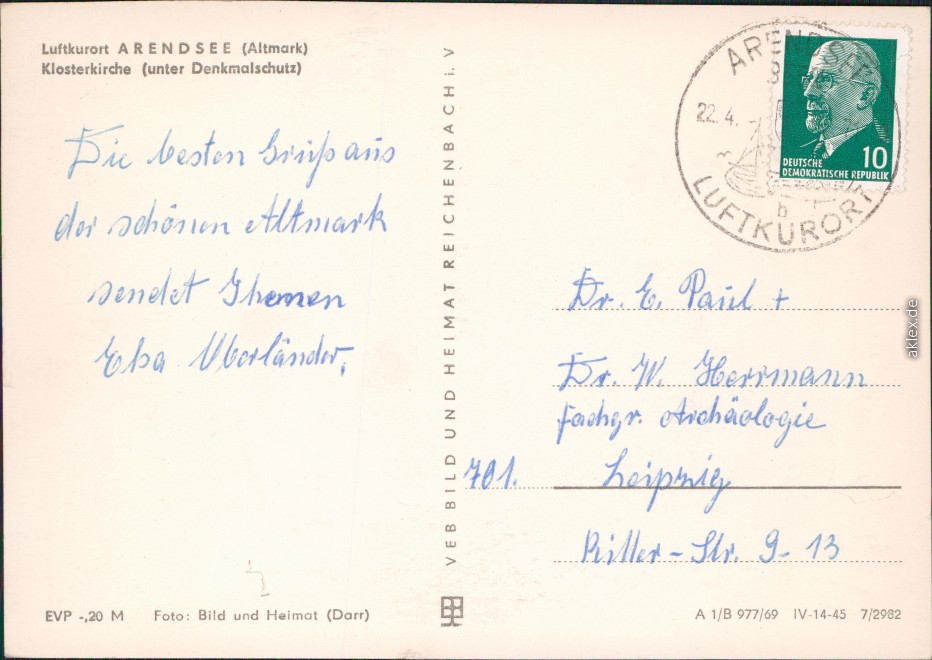 Luftkurort ARENDSEE (Altmark)
Klosterkirche (unter Denkmalschutz)
Die besten Grüß aus
der schönen Altmark
sendet Ihenen
Elsa Überländer.
EVP -,20 M Foto: Bild und Heimat (Darr)
VEB BILD UND HEIMAT REICHENBACH i. V
ARENDSEE
22. 4.
b
LUFTKURORT
10
DEUTSCHE
DEMOKRATISCHE REPUBLIK
Dr. E. Paul +
Dr. W. Herrmann
Fachgr. Archäologie
701. Leipzig
Ritter-Str. 9-13
A 1/B 977/69 IV-14-45 7/2982
aklex.de